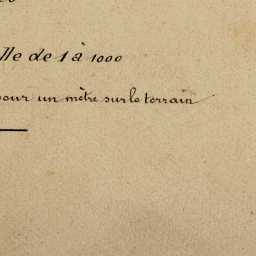 lle de 1 à 1000
pour un mètre sur le terrain